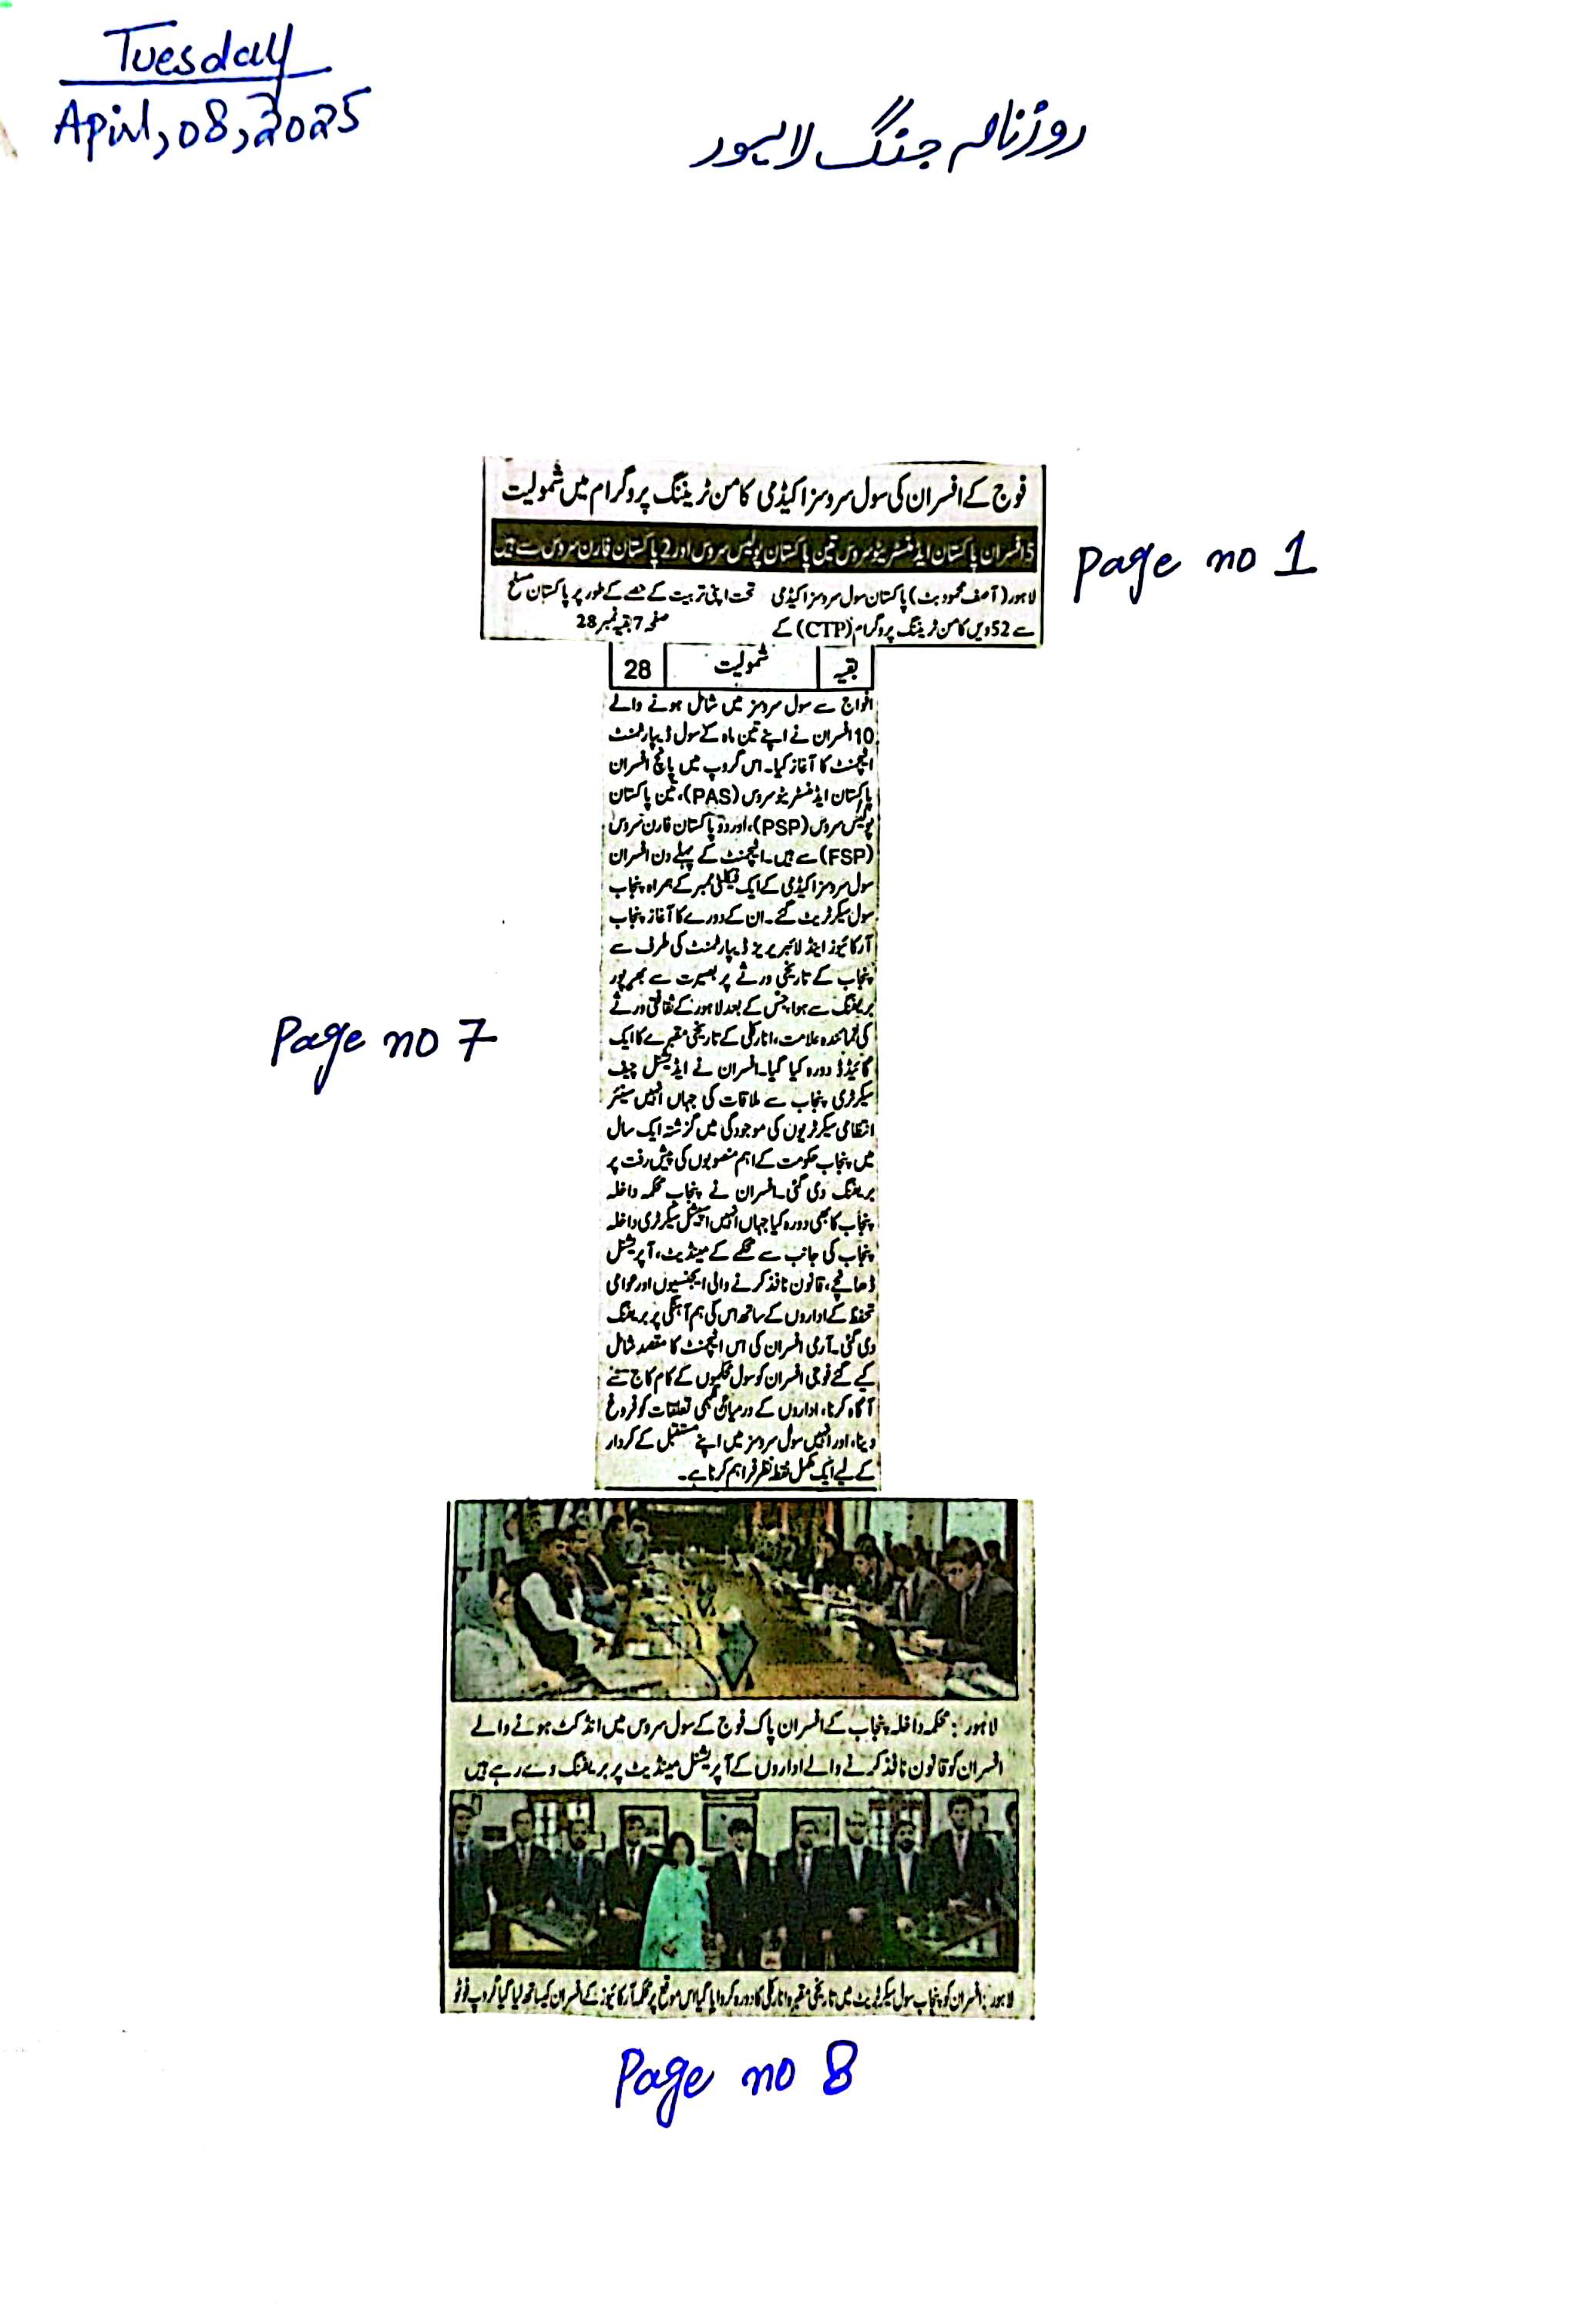 Tuesday
April, 08, 2025
روزنامہ جنگ لاہور
فوج کے افسران کی سول سروسز اکیڈمی کامن ٹریننگ پروگرام میں شمولیت
5 افسران پاکستان ایڈمنسٹریٹو سروس تین پاکستان پولیس سروس اور 2 پاکستان فارن سروس سے ہیں
Page no 1
لاہور (آصف محمود بٹ) پاکستان سول سروسز اکیڈمی
سے 52 ویں کامن ٹریننگ پروگرام (CTP) کے
تحت اپنی تربیت کے حصے کے طور پر پاکستان مسلح
صفحہ 7 بقیہ نمبر 28
بقیہ شمولیت 28
افواج سے سول سروسز میں شامل ہونے والے
10 افسران نے اپنے تین ماہ کے سول ڈیپارٹمنٹ
اٹیچمنٹ کا آغاز کیا۔ اس گروپ میں پانچ افسران
پاکستان ایڈمنسٹریٹو سروس (PAS)، تین پاکستان
پولیس سروس (PSP)، اور دو پاکستان فارن سروس
(FSP) سے ہیں۔ اٹیچمنٹ کے پہلے دن افسران
سول سروسز اکیڈمی کے ایک فیکلٹی ممبر کے ہمراہ پنجاب
سول سیکرٹریٹ گئے۔ ان کے دورے کا آغاز پنجاب
آرکائیوز اینڈ لائبریریز ڈیپارٹمنٹ کی طرف سے
پنجاب کے تاریخی ورثے پر بصیرت سے بھرپور
بریفنگ سے ہوا جس کے بعد لاہور کے ثقافتی ورثے
کی نمائندہ علامت، انارکلی کے تاریخی مقبرے کا ایک
گائیڈڈ دورہ کیا گیا۔ افسران نے ایڈیشنل چیف
سیکرٹری پنجاب سے ملاقات کی جہاں انہیں سینئر
انتظامی سیکرٹریوں کی موجودگی میں گزشتہ ایک سال
میں پنجاب حکومت کے اہم منصوبوں کی پیش رفت پر
بریفنگ دی گئی۔ افسران نے پنجاب محکمہ داخلہ
پنجاب کا بھی دورہ کیا جہاں انہیں اسپیشل سیکرٹری داخلہ
پنجاب کی جانب سے محکمے کے مینڈیٹ، آپریشنل
ڈھانچے، قانون نافذ کرنے والی ایجنسیوں اور عوامی
تحفظ کے اداروں کے ساتھ اس کی ہم آہنگی پر بریفنگ
دی گئی۔ آرمی افسران کی اس اٹیچمنٹ کا مقصد شامل
کیے گئے فوجی افسران کو سول محکموں کے کام کاج سے
آگاہ کرنا، اداروں کے درمیان تعلقات کو فروغ
دینا، اور انہیں سول سروسز میں اپنے مستقبل کے کردار
کے لیے ایک مکمل نقطہ نظر فراہم کرنا ہے۔
Page no 7
لاہور: محکمہ داخلہ پنجاب کے افسران پاک فوج کے سول سروس میں انڈکٹ ہونے والے
افسران کو قانون نافذ کرنے والے اداروں کے آپریشنل مینڈیٹ پر بریفنگ دے رہے ہیں
لاہور: افسران کو پنجاب سول سیکرٹریٹ میں تاریخی مقبرہ انارکلی کا دورہ کروایا گیا اس موقع پر محکمہ آرکائیوز کے افسران کیساتھ لیا گیا گروپ فوٹو
Page no 8